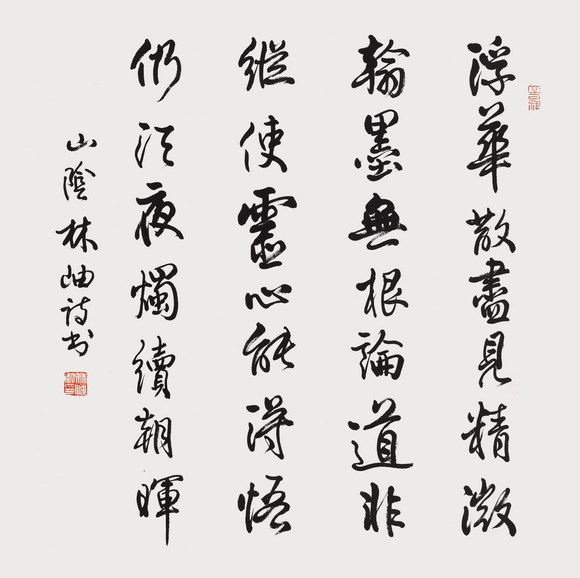 浮華散盡見精微
翰墨無根論道非
縱使靈心能得悟
仍須夜燭續朝暉
山陰林岫詩书